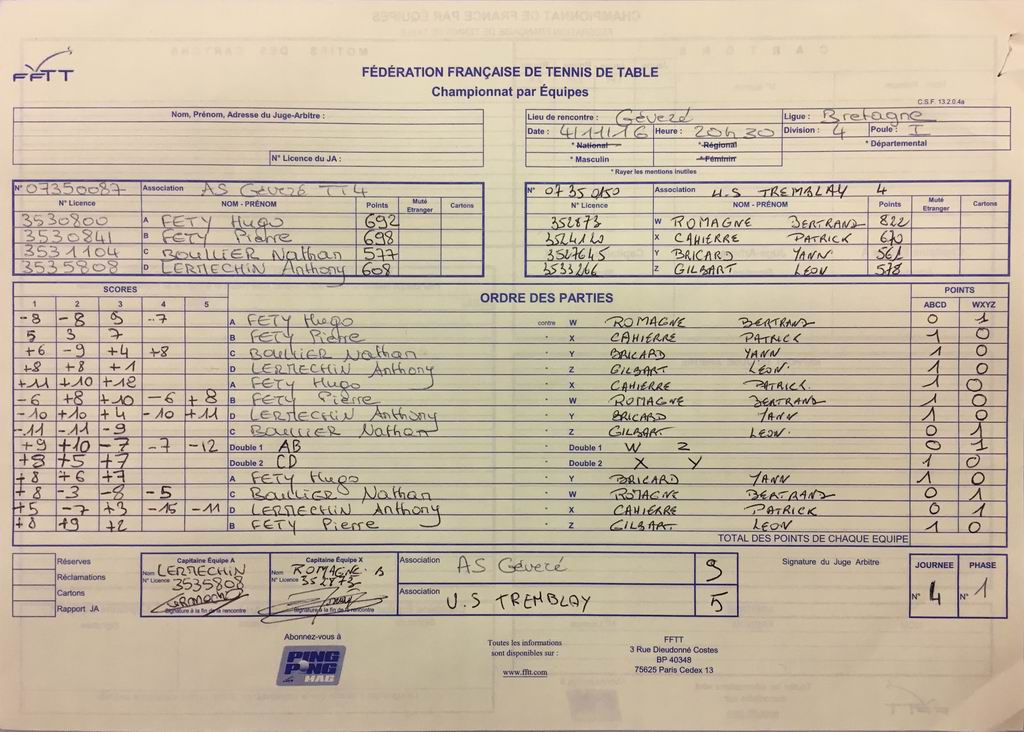 FFTT
FÉDÉRATION FRANÇAISE DE TENNIS DE TABLE
Championnat par Équipes
C.S.F. 13.2.0.4a
Nom, Prénom, Adresse du Juge-Arbitre :
N° Licence du JA :
Lieu de rencontre : Gévezé Ligue : Bretagne
Date : 4/11/16 Heure : 20h30 Division : 4 Poule : I
* National * Régional * Départemental
* Masculin * Féminin
* Rayer les mentions inutiles
N° 07350087 Association AS Gévezé TT 4
N° Licence NOM - PRÉNOM Points Muté Etranger Cartons
3530800 A FETY Hugo 692
3530841 B FETY Pierre 698
3531104 C BOULLIER Nathan 577
3535808 D LERMECHIN Anthony 608
N° 07350150 Association U.S TREMBLAY 4
N° Licence NOM - PRÉNOM Points Muté Etranger Cartons
352873 W ROMAGNE BERTRAND 822
3524120 X CAHIERRE PATRICK 670
3527645 Y BRICARD YANN 561
3533266 Z GILBART LEON 578
SCORES ORDRE DES PARTIES POINTS
1 2 3 4 5 ABCD WXYZ
-8 -8 9 -7 A FETY Hugo contre W ROMAGNE BERTRAND 0 1
5 3 7 B FETY Pierre - X CAHIERRE PATRICK 1 0
+6 -9 +4 +8 C BOULLIER Nathan - Y BRICARD YANN 1 0
+8 +8 +1 D LERMECHIN Anthony - Z GILBART LEON 1 0
+11 +10 +12 A FETY Hugo - X CAHIERRE PATRICK 1 0
-6 +8 +10 -6 +8 B FETY Pierre - W ROMAGNE BERTRAND 1 0
-10 +10 +4 -10 +11 D LERMECHIN Anthony - Y BRICARD YANN 1 0
-11 -11 -9 C BOULLIER Nathan - Z GILBART LEON 0 1
+9 +10 -7 -7 -12 Double 1 AB - Double 1 W Z 0 1
+8 +5 +7 Double 2 CD - Double 2 X Y 1 0
+8 +6 +7 A FETY Hugo - Y BRICARD YANN 1 0
+8 -3 -8 -5 C BOULLIER Nathan - W ROMAGNE BERTRAND 0 1
+5 -7 +3 -15 -11 D LERMECHIN Anthony - X CAHIERRE PATRICK 0 1
+8 +9 +2 B FETY Pierre - Z GILBART LEON 1 0
TOTAL DES POINTS DE CHAQUE EQUIPE
Réserves
Réclamations
Cartons
Rapport JA
Capitaine Équipe A
Nom LERMECHIN
N° Licence 3535808
Signature à la fin de la rencontre
Capitaine Équipe X
Nom ROMAGNE B
N° Licence 352873
Signature à la fin de la rencontre
Association AS Gévezé 9
Association U.S TREMBLAY 5
Signature du Juge Arbitre
JOURNEE PHASE
N° 4 N° 1
Abonnez-vous à
PING PONG MAG
Toutes les informations
sont disponibles sur :
www.fftt.com
FFTT
3 Rue Dieudonné Costes
BP 40348
75625 Paris Cedex 13